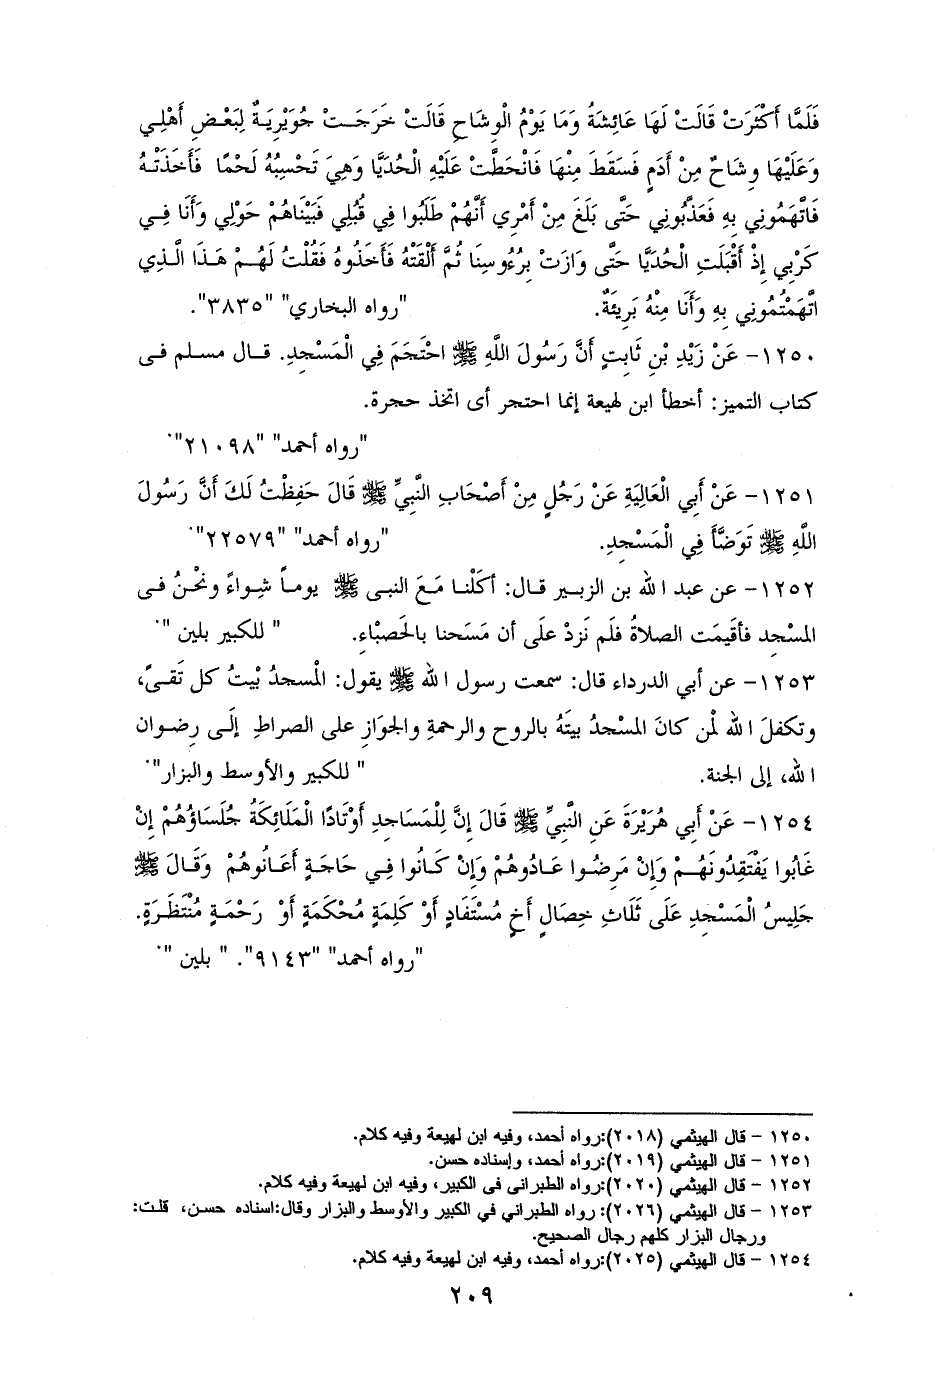 فَلَمَّا أَكْثَرَتْ قَالَتْ لَهَا عَائِشَةُ وَمَا يَوْمُ الْوِشَاحِ قَالَتْ خَرَجَتْ جُوَيْرِيَةٌ لِبَعْضِ أَهْلِي
وَعَلَيْهَا وِشَاحٌ مِنْ أَدَمٍ فَسَقَطَ مِنْهَا فَانْحَطَّتْ عَلَيْهِ الْحُدَيَّا وَهِيَ تَحْسِبُهُ لَحْمًا فَأَخَذَتْهُ
فَاتَّهَمُونِي بِهِ فَعَذَّبُونِي حَتَّى بَلَغَ مِنْ أَمْرِي أَنَّهُمْ طَلَبُوا فِي قُبُلِي فَبَيْنَاهُمْ حَوْلِي وَأَنَا فِي
كَرْبِي إِذْ أَقْبَلَتِ الْحُدَيَّا حَتَّى وَازَتْ بِرُءُوسِنَا ثُمَّ أَلْقَتْهُ فَأَخَذُوهُ فَقُلْتُ لَهُمْ هَذَا الَّذِي
اتَّهَمْتُمُونِي بِهِ وَأَنَا مِنْهُ بَرِيئَةٌ. "رواه البخاري" "٣٨٣٥".
١٢٥٠- عَنْ زَيْدِ بْنِ ثَابِتٍ أَنَّ رَسُولَ اللَّهِ ﷺ احْتَجَمَ فِي الْمَسْجِدِ. قال مسلم فى
كتاب التميز: أخطأ ابن لهيعة إنما احتجر أى اتخذ حجرة.
"رواه أحمد" "٢١٠٩٨".
١٢٥١- عَنْ أَبِي الْعَالِيَةِ عَنْ رَجُلٍ مِنْ أَصْحَابِ النَّبِيِّ ﷺ قَالَ حَفِظْتُ لَكَ أَنَّ رَسُولَ
اللَّهِ ﷺ تَوَضَّأَ فِي الْمَسْجِدِ. "رواه أحمد" "٢٢٥٧٩".
١٢٥٢- عن عبد الله بن الزبير قال: أكَلْنا مَعَ النبى ﷺ يوماً شِواءً ونحْنُ فى
المسْجِد فأقيمَت الصلاةُ فلَم نَزدْ علَى أن مَسَحنا بالحَصبْاء. " للكبير بلين ".
١٢٥٣- عن أبي الدرداء قال: سمعت رسول الله ﷺ يقول: الْمسجدُ بيْتُ كل تَقىً،
وتكفلَ الله لمْن كانَ المسْجدُ بيتَهُ بالروح والرحمةِ والجوَازِ على الصراطِ إلَى رِضوان
الله، إلى الجنة. " للكبير والأوسط والبزار".
١٢٥٤- عَنْ أَبِي هُرَيْرَةَ عَنِ النَّبِيِّ ﷺ قَالَ إِنَّ لِلْمَسَاجِدِ أَوْتَادًا الْمَلَائِكَةُ جُلَسَاؤُهُمْ إِنْ
غَابُوا يَفْتَقِدُونَهُمْ وَإِنْ مَرِضُوا عَادُوهُمْ وَإِنْ كَانُوا فِي حَاجَةٍ أَعَانُوهُمْ وَقَالَ ﷺ
جَلِيسُ الْمَسْجِدِ عَلَى ثَلَاثِ خِصَالٍ أَخٍ مُسْتَفَادٍ أَوْ كَلِمَةٍ مُحْكَمَةٍ أَوْ رَحْمَةٍ مُنْتَظَرَةٍ.
"رواه أحمد" "٩١٤٣". " بلين ".
١٢٥٠ - قال الهيثمي (٢٠١٨):رواه أحمد، وفيه ابن لهيعة وفيه كلام.
١٢٥١ - قال الهيثمي (٢٠١٩):رواه أحمد، وإسناده حسن.
١٢٥٢ - قال الهيثمي (٢٠٢٠):رواه الطبرانى فى الكبير، وفيه ابن لهيعة وفيه كلام.
١٢٥٣ - قال الهيثمي (٢٠٢٦): رواه الطبراني في الكبير والأوسط والبزار وقال:اسناده حسن، قلت:
ورجال البزار كلهم رجال الصحيح.
١٢٥٤ - قال الهيثمي (٢٠٢٥):رواه أحمد، وفيه ابن لهيعة وفيه كلام.
٢٠٩